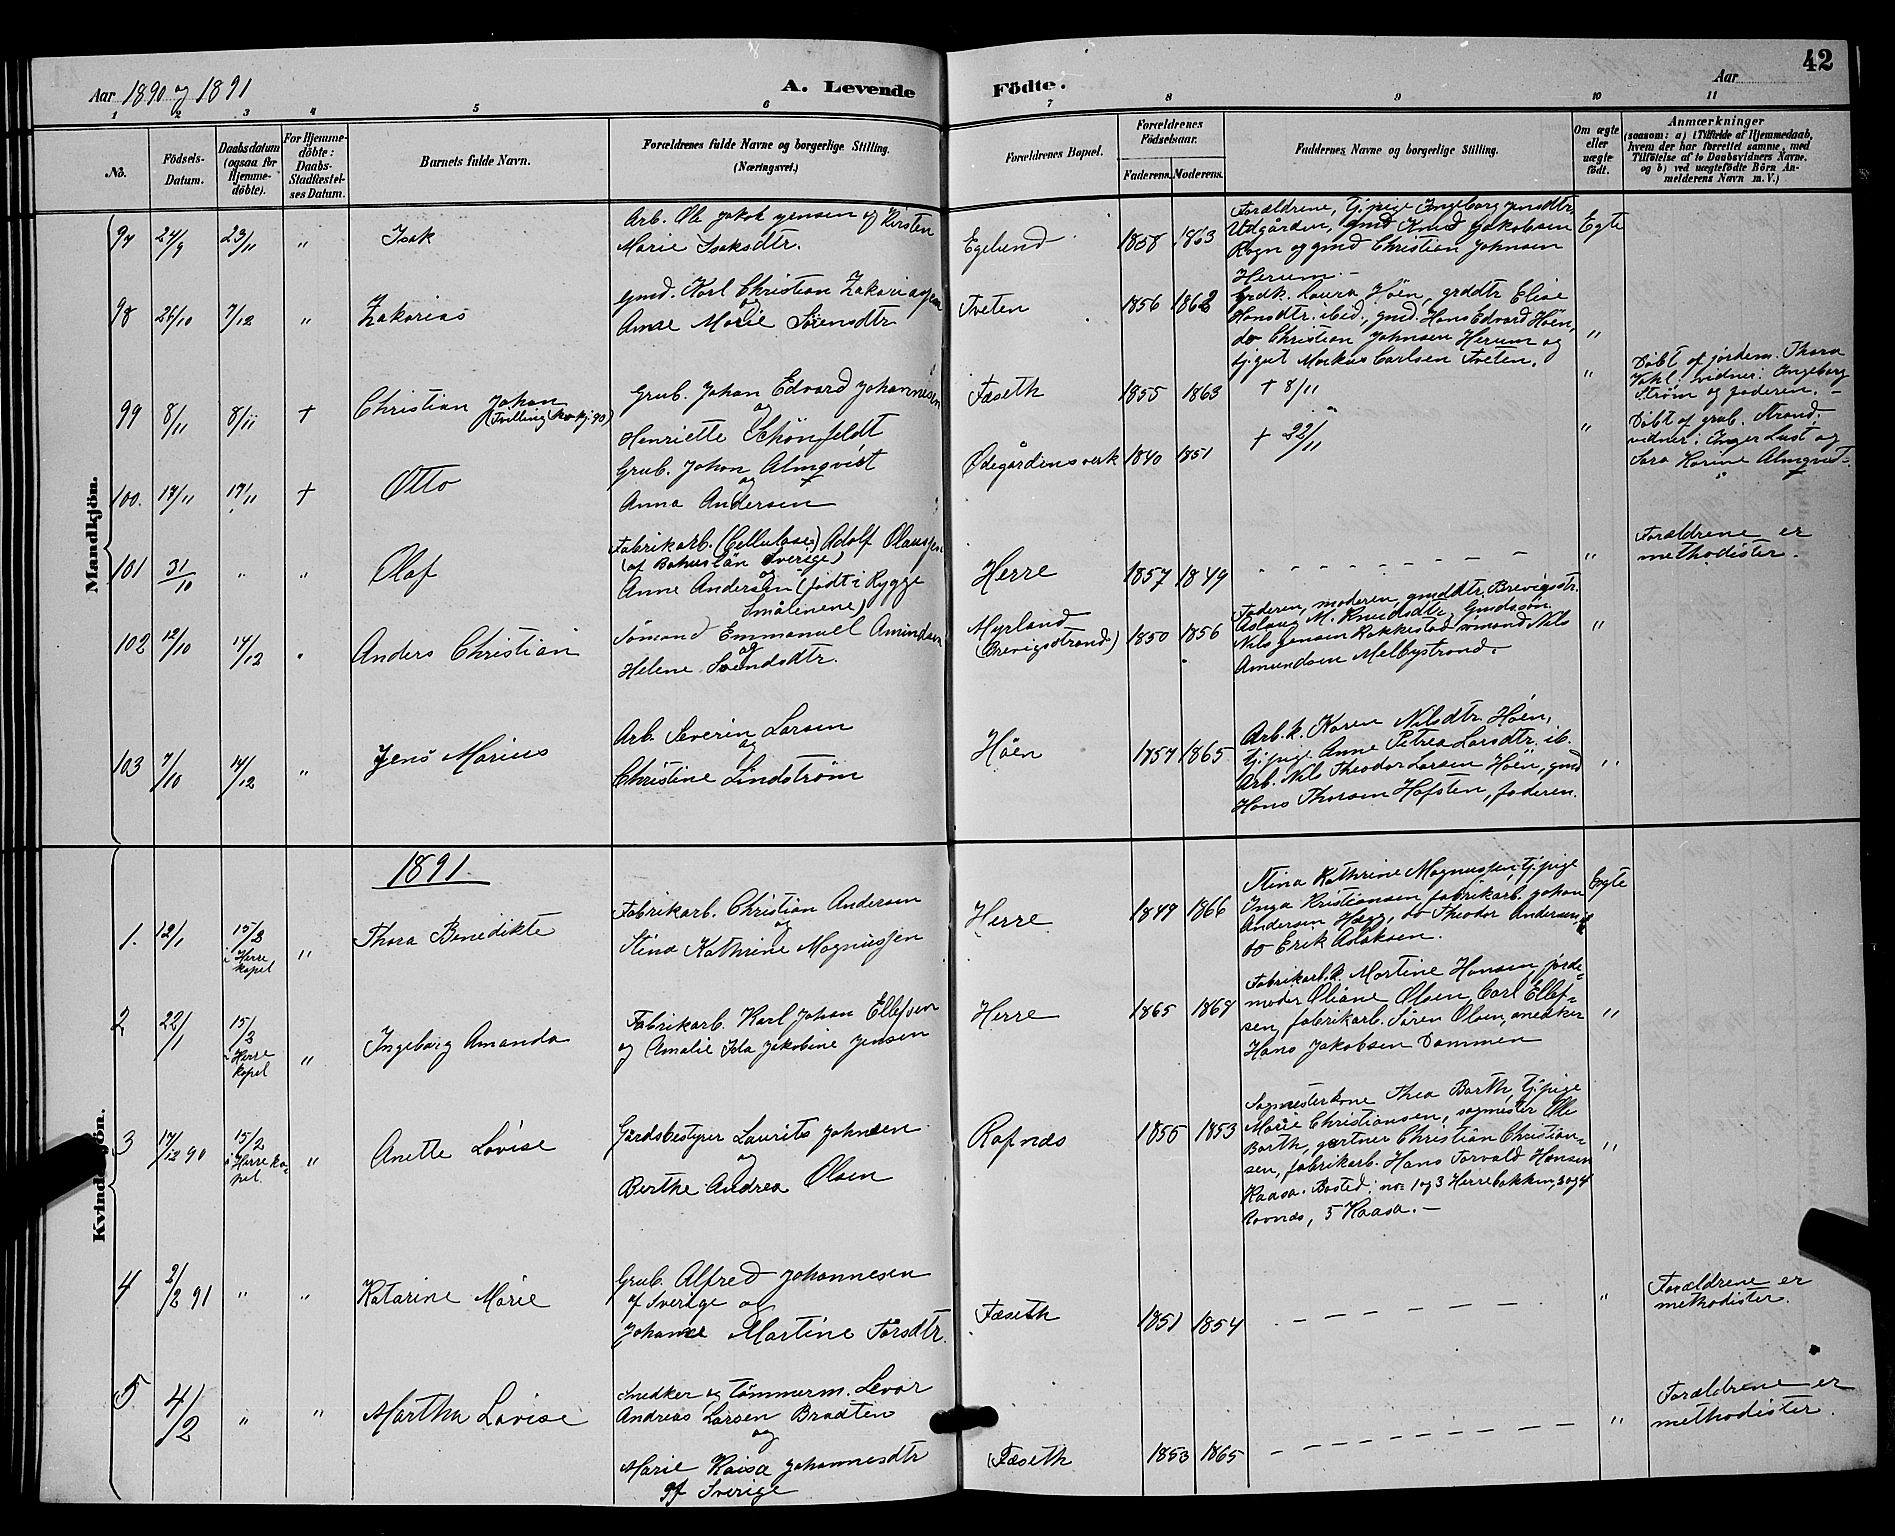 42
Aar 1890 og 1891
A. Levende
Födte.
Aar
1 2 3 4 5 6 7 8 9 10 11
No.
Födsels-
Datum.
Daabsdatum
(ogsaa for
Hjemme-
döbte).
For Hjemme-
döbte:
Daabs-
Stadfæstel-
ses Datum.
Barnets fulde Navn.
Forældrenes fulde Navne og borgerlige Stilling.
(Næringsvei.)
Forældrenes Bopæl.
Forældrenes
Födselsaar.
Faderens. Moderens.
Faddernes Navne og borgerlige Stilling.
Om ægte
eller
uægte
født.
Anmærkninger
(saasom: a) i Tilfælde af Hjemmedaab,
hvem der har forrettet samme, med
Tilföielse af to Daabsvidners Navne,
og b) ved uægtefödte Börn An-
melderens Navn m. V.)
Mandkjön.
97 24/9 23/11 " Isak
Arb. Ole Jakob Jensen og Kirsten
Marie Isaksdtr.
Egelund 1858 1863
Forældrene, tj.pige Ingeborg Jensdtr.
Udgården, gmd Knud Jakobsen
Rogn og gmd Christian Johnsen
Herum.-
Egte
98 26/10 7/12 " Zakarias
Gmd. Karl Christian Zakariassen
og
Anne Marie Sörensdtr
Tveten 1856 1862
Grdk. Laura Höen, grddtr Elise
Hansdtr. ibid., gmd. Hans Edvard Höen,
do Christian Johnsen Herum og
tj.gut Markus Carlsen Tveten.
"
99 8/11 8/11 + Christian Johan
(Tvilling kv.kj. 90)
Grub. Johan Edvard Johannesen
og
Henriette Schönfeldt
Fæseth 1855 1863
+ 8/11
"
Döbt af jordem. Thora
Vahl; vidner: Ingeborg
Ström og faderen. -
100. 17/11 17/11 + Otto
Grub. Johan Almqvist
og
Anna Andersen
Ödegårdensverk 1840 1851
+ 22/11
"
Döbt af grub. Strand.
vidner: Inger Lust og
Sara Karine Almqvist.
101 31/10 " " Olaf
Fabrikarb. (Cellulose) Adolf Olaussen
(af Bohuslän Sverige)
og
Anne Andersen (födt i Rygge
Smålenene)
Herre 1857 1849
"
Forældrene er
methodister.
102 12/10 14/12 " Anders Christian
Sömand Emmanuel Amundsen
og
Helene Svendsdtr.
Myrland
(Brevigstrand) 1850 1856
Faderen, moderen, gmddtr Brevigstr.
Aslaug M. Knudsdtr, Gmdssön
Nils Jensen Rakkestad, sömand Nils
Amundsen Melbystrand.
"
103 7/10 14/12 " Jens Marius
Arb. Severin Larsen
og
Christine Lindström
Höen 1857 1865
Arb.k. Karen Nilsdtr. Höen,
tj.pige Anne Petrea Larsdtr. ib.
Arb. Nils Theodor Larsen Höen, gmd
Hans Thorsen Hafsten, faderen.
"
1891.
Kvindekjön.
1. 12/1 15/2
i Herre
kapel " Thora Benedikte
Fabrikarb. Christian Andersen
og
Stina Kathrine Magnussen
Herre 1849 1866
Stina Kathrine Magnussen, tj.pige
Inga Kristiansen, fabrikarb. Johan
Andersen Hagg, do Theodor Andersen,
do Erik Aslaksen.
Egte
2 22/1 15/2
i Herre
kapel " Ingeborg Amanda
Fabrikarb. Karl Johan Ellefsen
og Amalie Ida Jakobine Jensen
Herre 1865 1864
Fabrikarb.k. Martine Hansen, jorde-
moder Oliane Olsen, Carl Ellef-
sen, fabrikarb. Sören Olsen, snedker
Hans Jakobsen Dammen
"
3 17/12 90 15/2
i Herre ka-
pel. " Anette Lovise
Gårdsbestyrer Laurits Johnsen
og
Berthe Andrea Olsen
Rafnæs 1855 1853
Sagmesterkone Thea Barth, tj.pige
Marie Christiansen, sagmester Ole
Barth, gartner Christian Christian-
sen, fabrikarb. Hans Torvald Hansen
Kaasa. Bosted: no 1 og 3 Herrebakken, 2 og 4
Ravnæs, 5 Kaasa. -
"
4 2/2 91 " " Katarine Marie
Grub. Alfred Johannesen
af Sverige og
Johanne Martine Torsdtr.
Fæseth 1851 1854
"
Forældrene er
methodister.
5 4/2 " " Martha Lovise
Snedker og tömmerm. Levor
Andreas Larsen Bradten
og
Marie Kaisa Johannesdtr
af Sverige
Fæseth 1853 1865
"
Forældrene er
methodister.